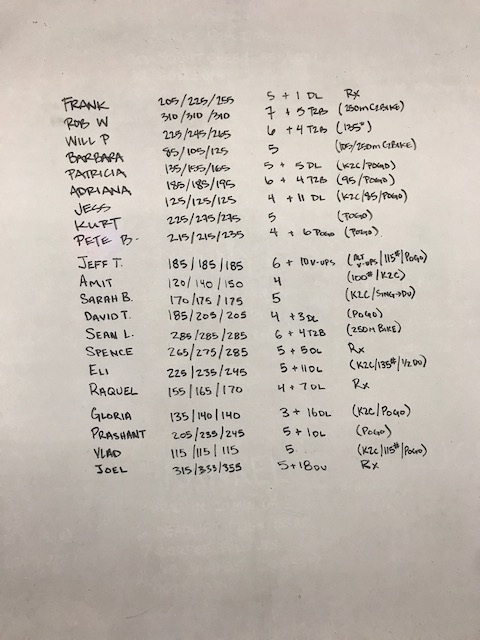 FRANK 205/225/255 5 + 1 DL Rx
ROB W 310/310/310 7 + 5 T2B (250m C2BIKE)
WILL P 225/245/265 6 + 4 T2B (135#)
BARBARA 85/105/125 5 (105/250m C2BIKE)
PATRICIA 135/155/165 5 + 5 DL (K2C/POGO)
ADRIANA 185/185/195 6 + 4 T2B (95/POGO)
JESS 125/125/125 4 + 11 DL (K2C/85/POGO)
KURT 225/275/275 5 (POGO)
PETE B. 215/215/235 4 + 6 POGO (POGO)
JEFF T. 185/185/185 6 + 10 V-UPS (ALT V-UPS/115#/POGO)
AMIT 120/140/150 4 (100#/K2C)
SARAH B. 170/175/175 5 (K2C/SING→DU)
DAVID T. 185/205/205 4 + 3 DL (POGO)
SEAN L. 285/285/285 6 + 4 T2B (250M BIKE)
SPENCE 265/275/285 5 + 5 DL Rx
ELI 225/235/245 5 + 11 DL (K2C/135#/1/2 DU)
RAQUEL 155/165/170 4 + 7 DL Rx
GLORIA 135/140/140 3 + 16 DL (K2C/POGO)
PRASHANT 205/235/245 5 + 1 DL (POGO)
VLAD 115/115/115 5 (K2C/115#/POGO)
JOEL 315/335/355 5 + 18 DU Rx